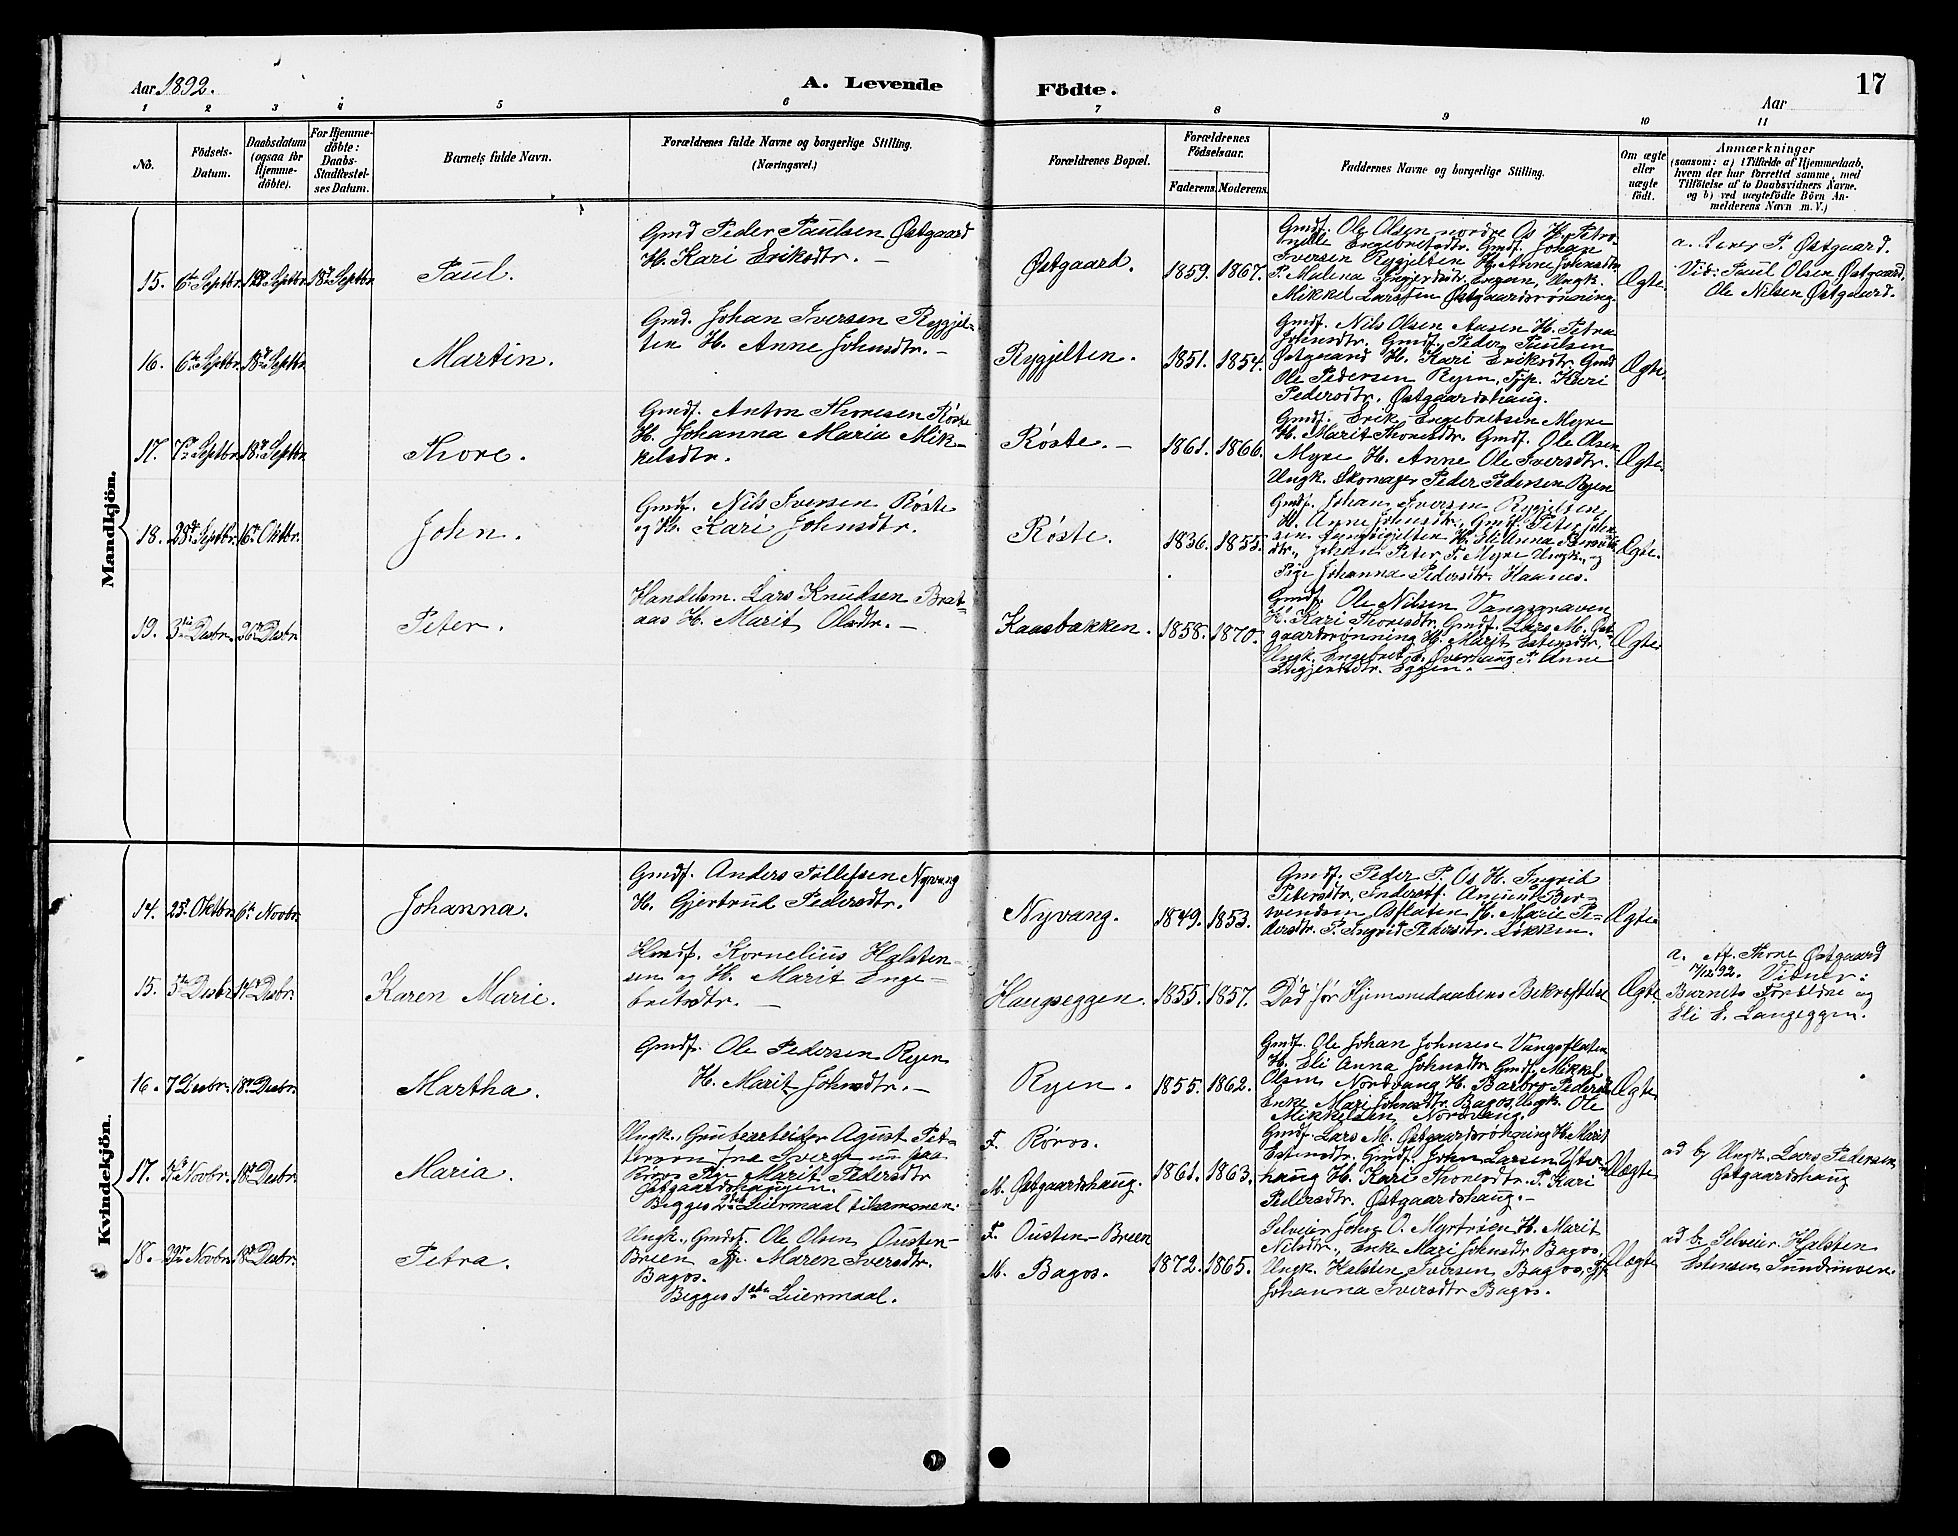 Aar 1892.
A. Levende
Födte.
17
Aar
1 2 3 4 5 6 7 8 9 10 11
No.
Födsels-
Datum.
Daabsdatum
(ogsaa for
Hjemme-
döbte).
For Hjemme-
döbte:
Daabs-
Stadfæstel-
ses Datum.
Barnets fulde Navn.
Forældrenes fulde Navne og borgerlige Stilling.
(Næringsvei.)
Forældrenes Bopæl.
Forældrenes
Födselsaar.
Faderens. Moderens.
Faddernes Navne og borgerlige Stilling.
Om ægte
eller
uægte
födt.
Anmærkninger
(saasom: a) i Tilfælde af Hjemmedaab,
hvem der har forrettet samme, med
Tilföielse af to Daabsvidners Navne.
og b) ved uægtefödte Börn An-
melderens Navn m. V.)
Mandkjön.
15. 6te Septbr. Septbr. 18de Septbr.
Paul.
Gmd Peder Paulsen Østgaard
H. Kari Eriksdtr. —
Østgaard.
1859. 1867.
Gmdf. Ole Olsen nordre Os H. Petro-
nelle Engebretsdtr. Gmdf. Johan
Iversen Rygjelten H. Anne Johnsdtr.
P. Malena Eggen, Ungk.
Mikkel Larssen Østgaardsrønning.
Ægte
a. Lærer P. Østgaard.
Vid: Paul Olsen Østgaard,
Ole Nilsen Østgaard.
16. 6te Septbr. 18de Septbr.
Martin.
Gmd. Johan Iversen Rygjel-
ten H. Anne Johnsdtr. —
Rygjelten.
1851. 1854.
Gmdf. Nils Olsen Aasen H. Petra
Johnsdtr. Gmdf. Peder Paulsen
Østgaard H. Kari Eriksdtr. Gmd
Ole Pedersen Ryen, Kari
Pedersdtr. Østgaardshaug.
Ægte.
17. 7de Septbr. 18de Septbr.
Thore.
Gmdf. Anton Thoresen Røste
H. Johanna Maria Mik-
kelsdtr.
Røste. —
1861. 1866.
Gmdf. Erik Engebretsen Myre
H. Marit Thoresdtr. Gmdf. Ole Olsen
Myre H. Anne Ole Iversdtr.
Ungk. Skomager Peder Pedersen Ryen
Ægte.
18. 28de Septbr. 16de Oktbr.
John.
Gmdf. Nils Iversen Røste
og H. Kari Johnsdtr.
Røste.
1836. 1855.
Gmdf. Johan Iversen Rygjelten
H. Anne Johnsdtr., Gmdf. Peter
H. Eli Anna
dtr., Johan Peter P. Myre Ungk., og
Pige Johanna Pedersdtr. Haanes.
Ægte.
19. 3die Desbr. 26de Desbr
Peter.
Handelsm. Lars Knudsen Brat-
aas H. Marit Olsdtr. —
Kaasbakken.
1858. 1870.
Gmdf. Ole Nilsen Vangsgraven
H. Kari Thoresdtr. Gmdf. Lars M. Øst-
gaardsrønning H. Marit Estensdtr.
Ungk. Engebret E. Øverhaug P. Anne
Eggen. —
Ægte
Kvindekjön.
14. 25. Oktbr. 6te Novbr.
Johanna.
Gmdf. Anders Tollefsen Nyvang
H. Gjertrud Pedersdtr.
Nyvang.
1849. 1853.
Gmdf. Peder P. Os H. Ingrid
Petersdtr, Inderstf. Amund Ber-
svendsen Osfløten H. Marie Pe-
dersdtr. P. Ingrid Pedersdtr. Løkken.
Ægte
15. 3die Desbr. Desbr.
Karen Marie.
Gmdf. Kornelius Halsten-
sen og H. Marit Enge-
bretsdtr. —
Haugseggen.
1855. 1857.
Død før Hjemmedaabens Bekræftelse
Ægte
a. Af Thore Østgaard
7/12 92. Vidner:
Barnets Forældre og
Eli E. Langeggen.
16. 7 Desbr. 18de Desbr.
Martha.
Gmdf. Ole Pedersen Ryen
H. Marit Johnsdtr. —
Ryen.
1855. 1862.
Gmdf. Ole Johan Johnsen Vangsfløten
H. Eli Anna Johnsdtr. Gmdf. Mikkel
Olsen Nordvang H. Barbro Pedersdtr
Enke Mari Johnsdtr. Bagos, Ungk. Ole
Mikkelsen Nordvang.
Ægte
17. Novbr. 18de Desbr.
Maria.
Ungk., Grubearbeider Agust Pet-
terson fra Sverge nu paa
Røros Pig. Marit Pedersdtr
Østgaardshaugen.
Begges Leiermaal tilsammen.
F. Røros.
M. Østgaardshaug.
1861. 1863.
Gmdf. Lars M. Østgaardsrønning H. Marit
Estensdtr. Gmdf. John Larsen Yster-
haug H. Kari Thoresdtr. P. Kari
Pedersdtr. Østgaardshaug. —
Uægte
ad b) Ungk. Lars Pedersen
Østgaardshaug
18. 29de Novbr. 18de Desbr.
Petra.
Ungk., Gmdsf. Ole Olsen Ousten-
Breen Pi. Maren Iversdtr.
Bagos.
Begges 1ste Leiermaal.
F. Ousten-Breen
M. Bagos.
1872. 1865.
Selveier John O. Myrtrøen H. Marit
Nilsdtr., Enke Mari Johnsdtr Bagos,
Ungk. Halsten Iversen Bagos,
Johanna Iversdtr Bagos.
Uægte
ad b. Selveier Halsten
Estensen Sundmoen.